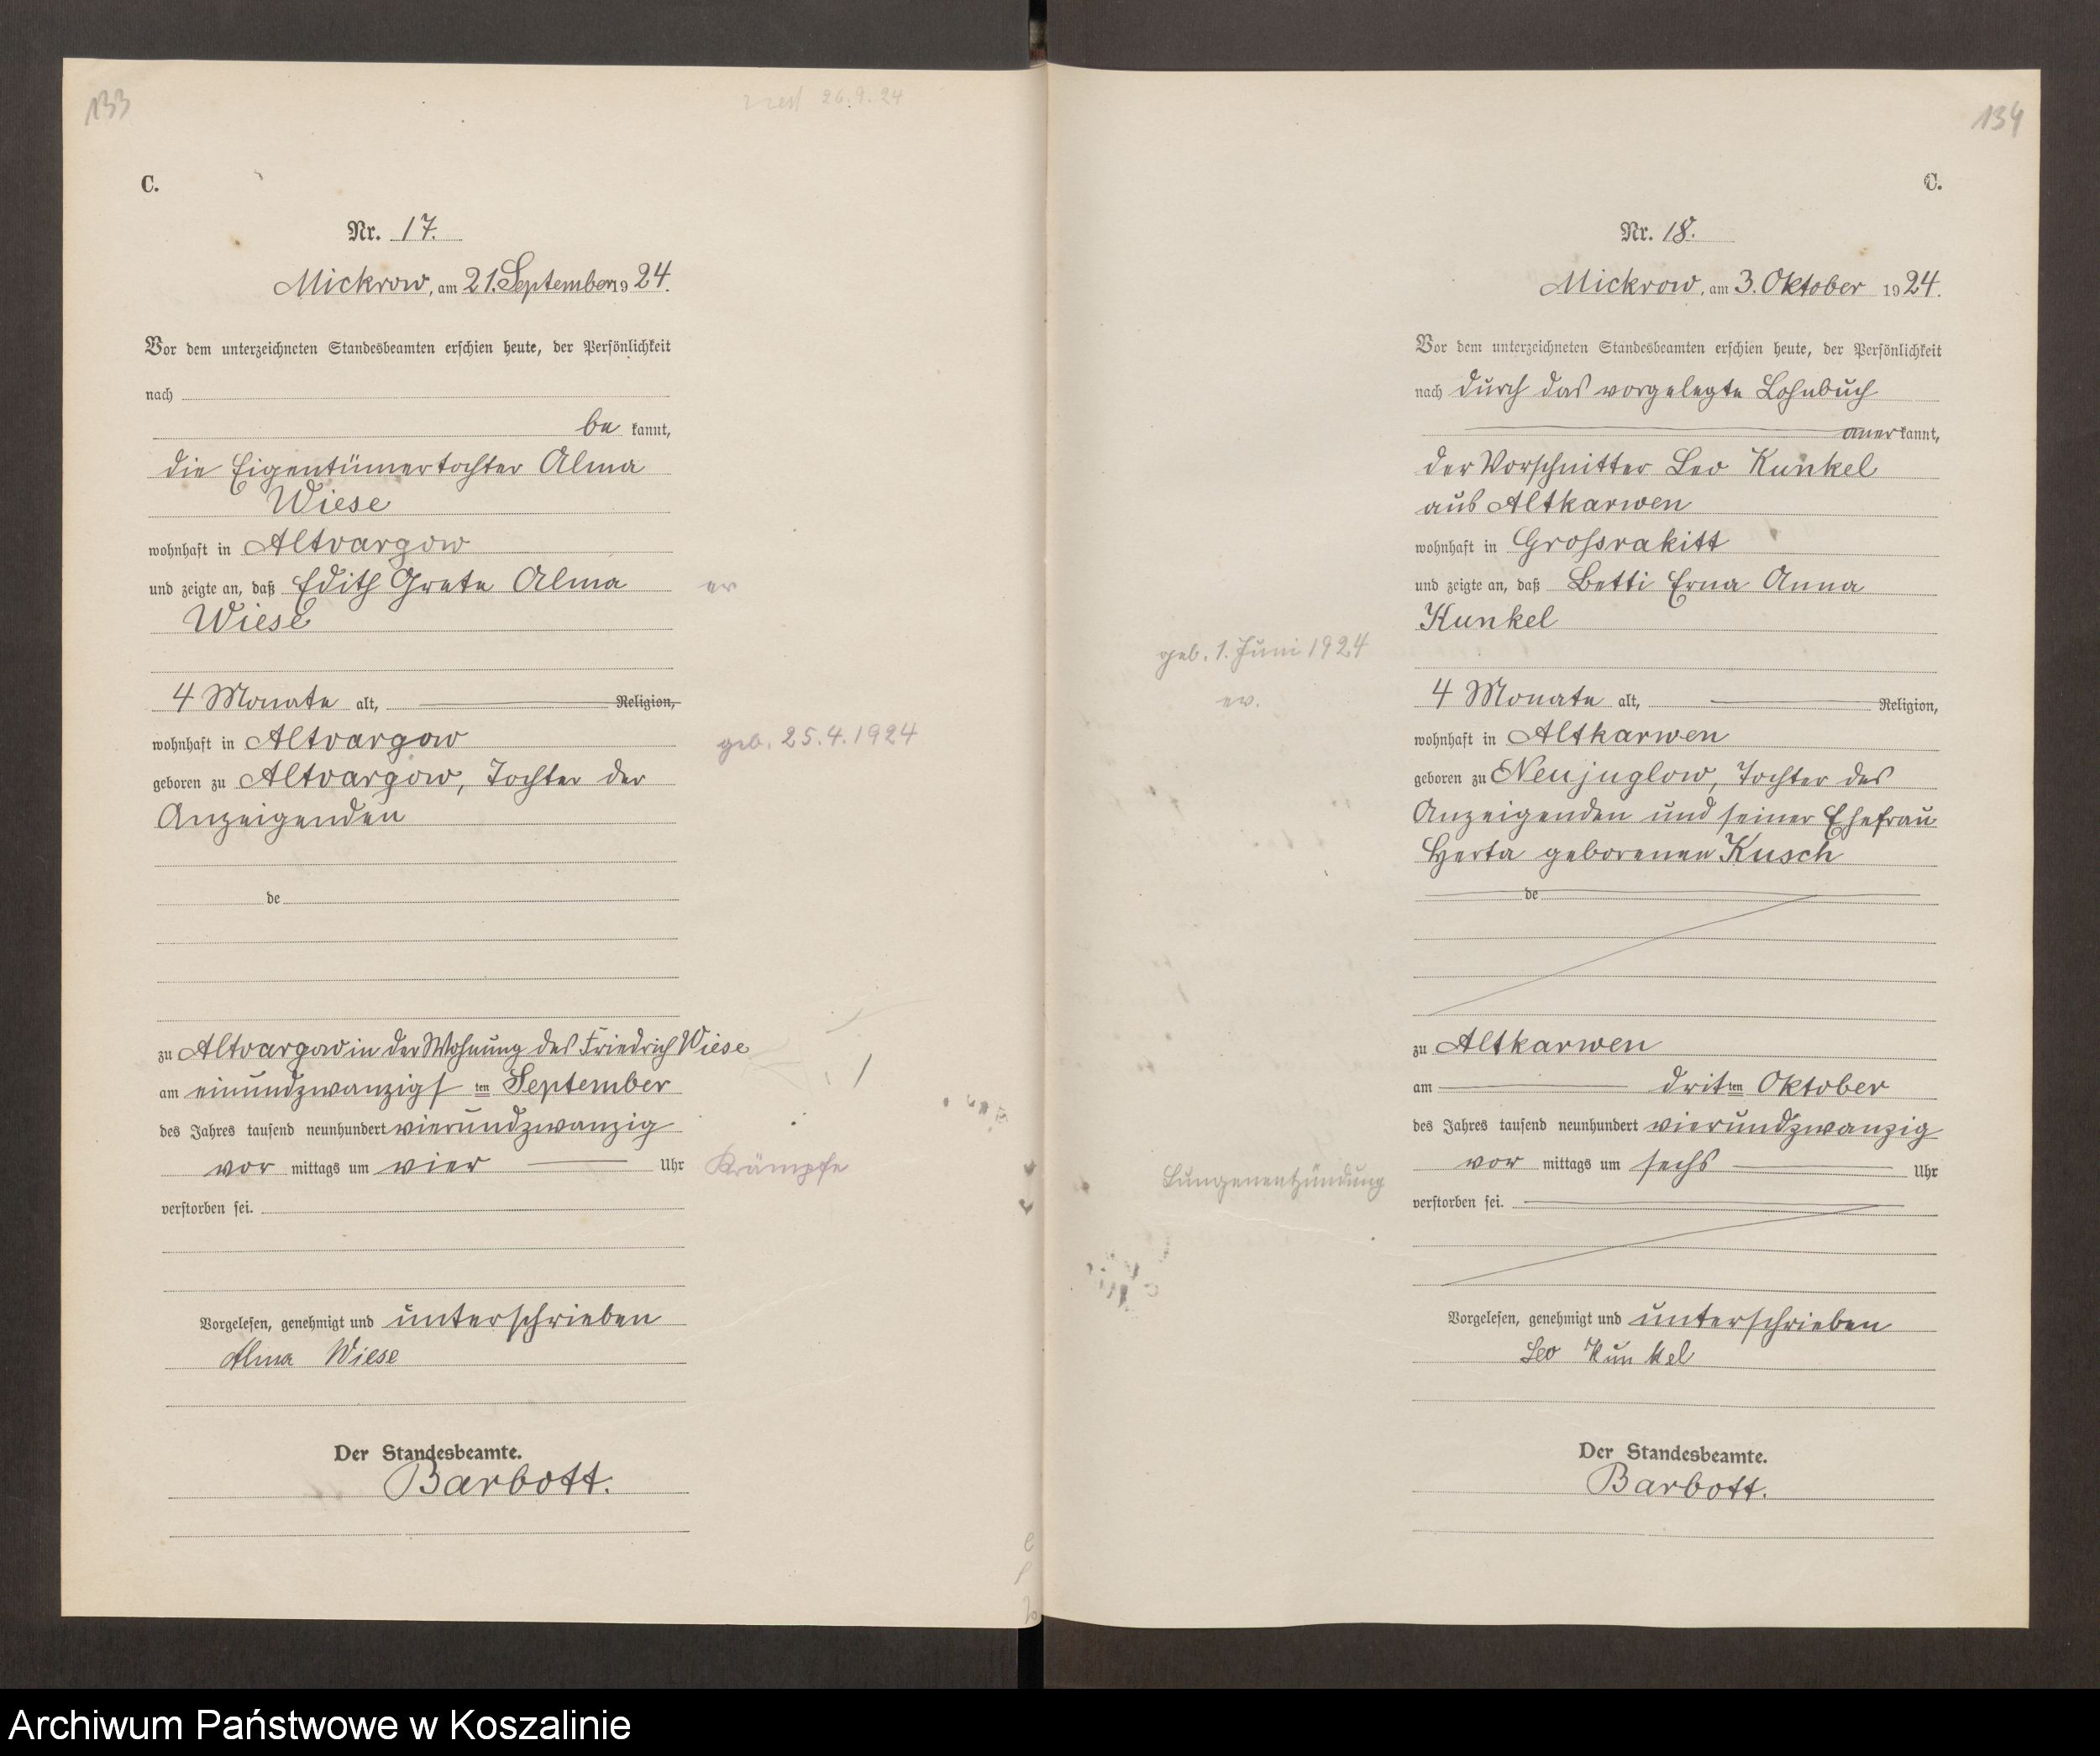 133
26.9.24
C.
Nr. 17.
Mickrow, am 21. September 1924.
Vor dem unterzeichneten Standesbeamten erschien heute, der Persönlichkeit
nach
be kannt,
die Eigentümertochter Alma
Wiese
wohnhaft in Altvargow
und zeigte an, daß Edith Grete Alma
ev
Wiese
4 Monate alt, Religion,
wohnhaft in Altvargow
geb. 25.4.1924
geboren zu Altvargow, Tochter der
Anzeigenden
de
zu Altvargow in der Wohnung des Friedrich Wiese
am einundzwanzigsten September
des Jahres tausend neunhundert vierundzwanzig
vor mittags um vier Uhr
Krämpfe
verstorben sei.
Vorgelesen, genehmigt und unterschrieben
Alma Wiese
Der Standesbeamte.
Barbott.
134
C.
Nr. 18.
Mickrow, am 3. Oktober 1924.
Vor dem unterzeichneten Standesbeamten erschien heute, der Persönlichkeit
nach durch das vorgelegte Lohnbuch
aner kannt,
der Vorschnitter Leo Kunkel
aus Altkarwen
wohnhaft in Grossrakitt
und zeigte an, daß Betti Erna Anna
Kunkel
geb. 1. Juni 1924
4 Monate alt, Religion,
ev.
wohnhaft in Altkarwen
geboren zu Neujuglow, Tochter des
Anzeigenden und seiner Ehefrau
Herta geborenen Kusch
de
zu Altkarwen
am dritten Oktober
des Jahres tausend neunhundert vierundzwanzig
vor mittags um sechs Uhr
Lungenentzündung
verstorben sei.
Vorgelesen, genehmigt und unterschrieben
Leo Kunkel
Der Standesbeamte.
Barbott.
Archiwum Państwowe w Koszalinie